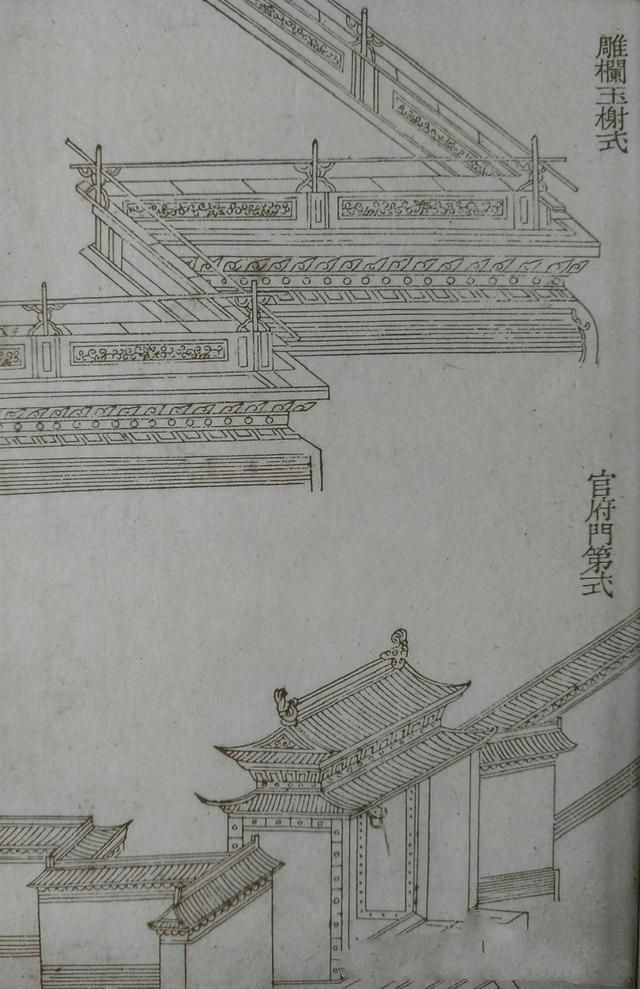 雕欄玉榭式
官府門第式